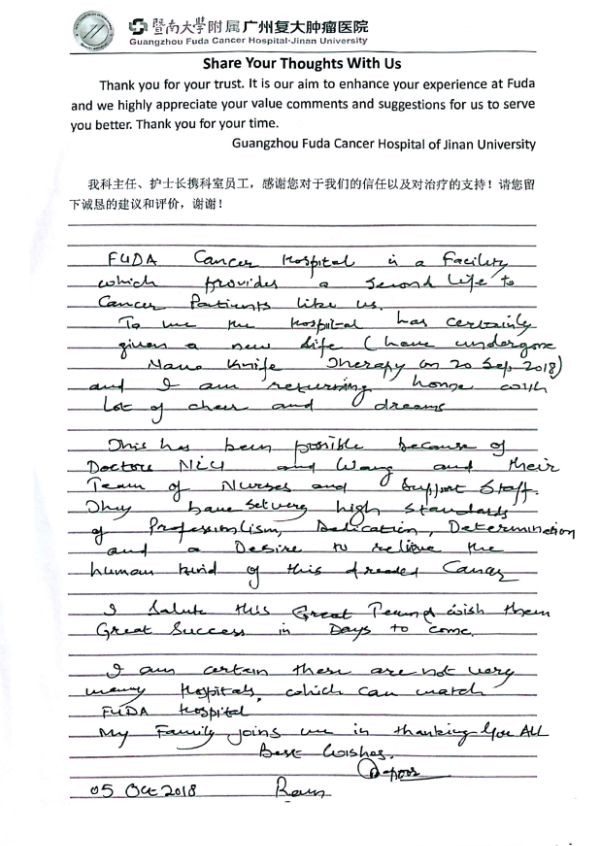 暨南大学附属广州复大肿瘤医院
Guangzhou Fuda Cancer Hospital-Jinan University
Share Your Thoughts With Us
Thank you for your trust. It is our aim to enhance your experience at Fuda
and we highly appreciate your value comments and suggestions for us to serve
you better. Thank you for your time.
Guangzhou Fuda Cancer Hospital of Jinan University
我科主任、护士长携科室员工，感谢您对于我们的信任以及对治疗的支持！请您留
下诚恳的建议和评价，谢谢！
FUDA Cancer Hospital is a Facility
which provides a second life to
Cancer Patients like us.
To me the Hospital has certainly
given a new life (have undergone
Nano Knife Therapy on 20 Sep 2018)
and I am returning home with
lot of cheer and dreams
This has been possible because of
Doctors NIU and Wang and their
Team of Nurses and Support Staff.
They have set very high standards
of Professionlism, Dedication, Determination
and a Desire to relieve the
human kind of this dreaded Cancer
I Salute this Great Team and wish them
Great Success in Days to come.
I am certain there are not very
many Hospitals, which can match
FUDA Hospital
My Family joins me in thanking You All
Best Wishes.
05 Oct 2018